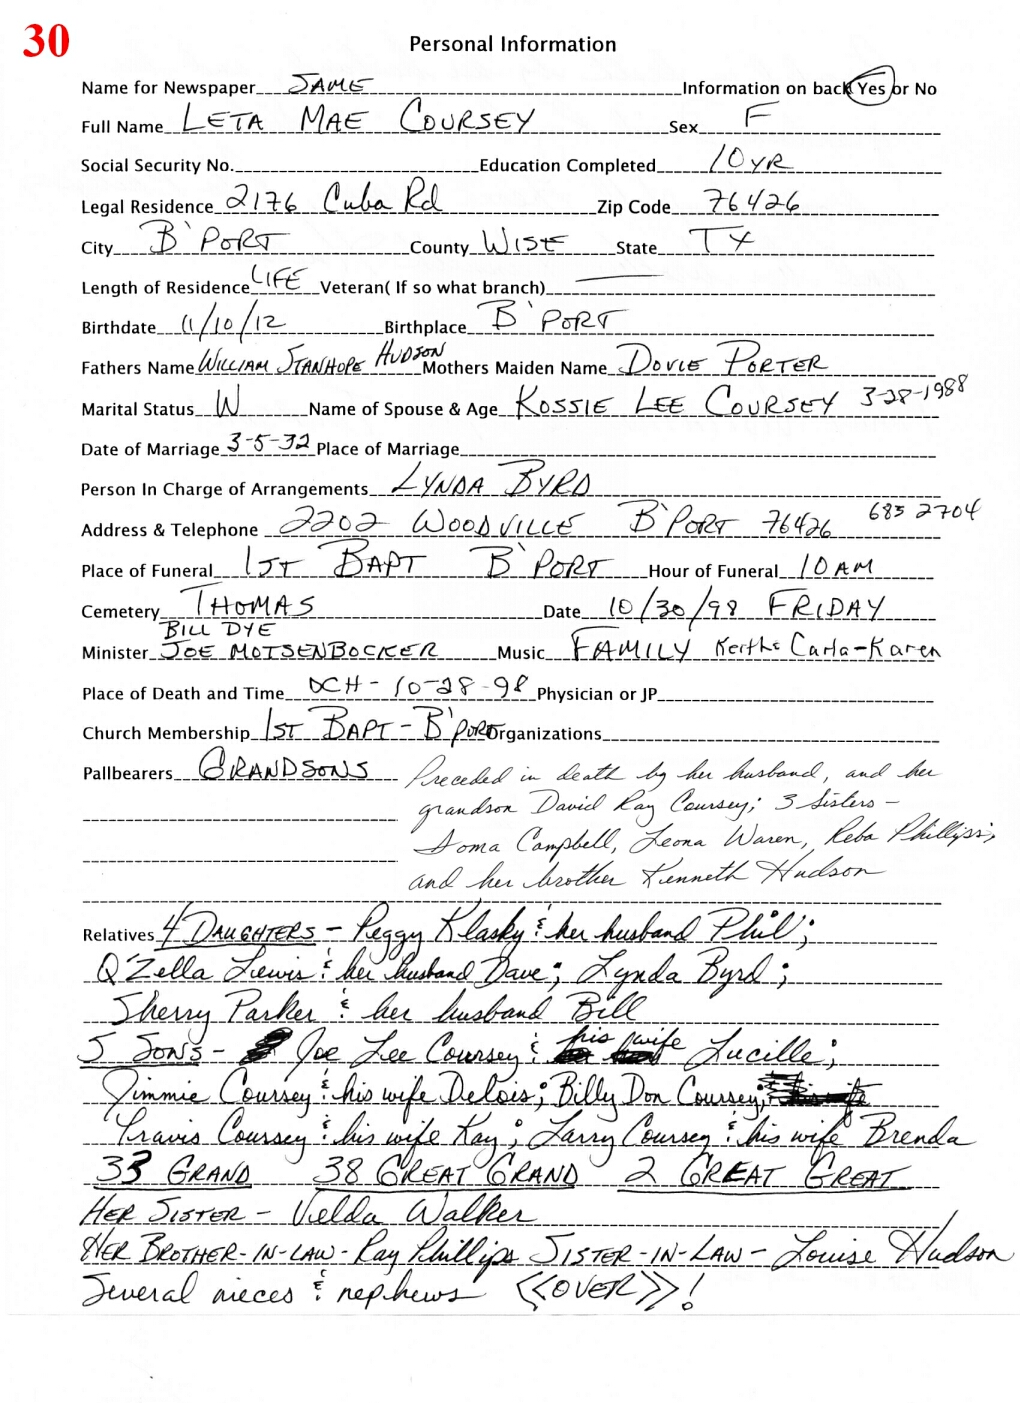 30
Personal Information
Name for Newspaper SAME Information on back Yes or No
Full Name LETA MAE COURSEY Sex F
Social Security No. Education Completed 10 YR
Legal Residence 2176 Cuba Rd Zip Code 76426
City B'PORT County WISE State TX
Length of Residence LIFE Veteran( If so what branch) —
Birthdate 11/10/12 Birthplace B'PORT
Fathers Name WILLIAM STANHOPE HUDSON Mothers Maiden Name DOVIE PORTER
Marital Status W Name of Spouse & Age KOSSIE LEE COURSEY 3-28-1988
Date of Marriage 3-5-32 Place of Marriage
Person In Charge of Arrangements LYNDA BYRD
Address & Telephone 2202 WOODVILLE B'PORT 76426 683 2704
Place of Funeral 1ST BAPT B'PORT Hour of Funeral 10 AM
Cemetery THOMAS Date 10/30/98 FRIDAY
BILL DYE
Minister JOE MOTSENBOCKER Music FAMILY Carla-Karen
Place of Death and Time DCH - 10-28-98 Physician or JP
Church Membership 1ST BAPT - B'PORT Organizations
Pallbearers GRANDSONS Preceded in death by her husband, and her
grandson David Ray Coursey; 3 Sisters -
Campbell, Leona Waren, Reba Phillips;
and her brother Kenneth Hudson
Relatives 4 DAUGHTERS - Peggy Klasky & her husband Phil;
O'Zella Lewis & her husband Dave; Lynda Byrd;
Sherry Parker & her husband Bill
5 SONS - Joe Lee Coursey & his wife Lucille;
Jimmie Coursey & his wife Delois; Billy Don Coursey;
Travis Coursey & his wife Kay; Larry Coursey & his wife Brenda
33 GRAND 38 GREAT GRAND 2 GREAT GREAT
HER SISTER - Velda Walker
HER BROTHER-IN-LAW - Ray Phillips SISTER-IN-LAW - Louise Hudson
Several nieces & nephews <<OVER>>!